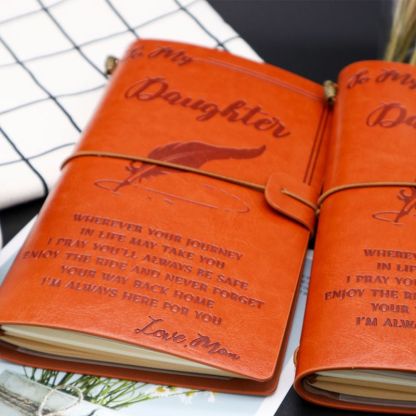 To My
Daughter
WHEREVER YOUR JOURNEY
IN LIFE MAY TAKE YOU
I PRAY YOU'LL ALWAYS BE SAFE
ENJOY THE RIDE AND NEVER FORGET
YOUR WAY BACK HOME
I'M ALWAYS HERE FOR YOU
Love, Mom
To My
Da
WHEREV
IN LIFE
I PRAY YO
ENJOY THE RIDE
YOUR
I'M ALWA